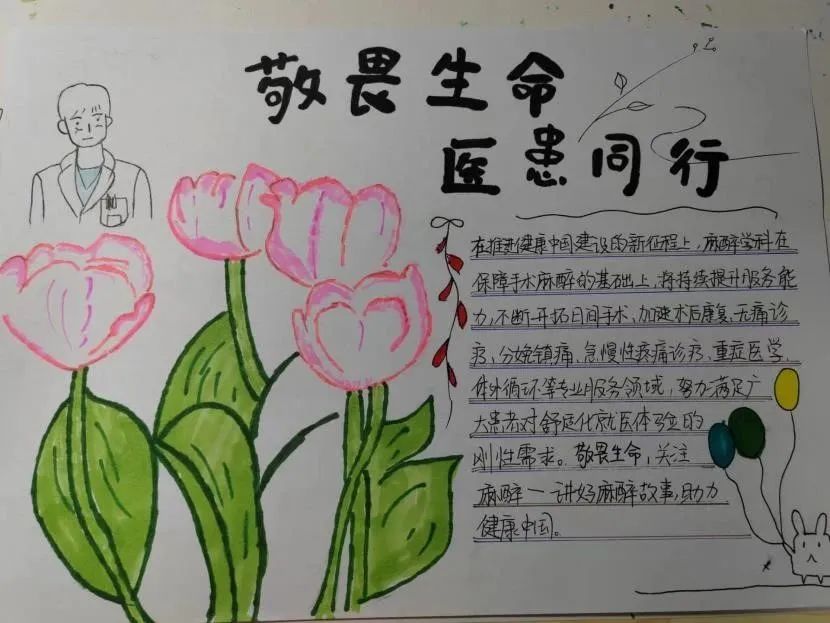 敬畏生命
医患同行
在推进健康中国建设的新征程上，麻醉学科在
保障手术麻醉的基础上，将持续提升服务能
力，不断开拓日间手术、加速术后康复、无痛诊
疗、分娩镇痛、急慢性疼痛诊疗、重症医学、
体外循环等专业服务领域，努力满足广
大患者对舒适化就医体验的
刚性需求。敬畏生命，关注
麻醉—讲好麻醉故事，助力
健康中国。